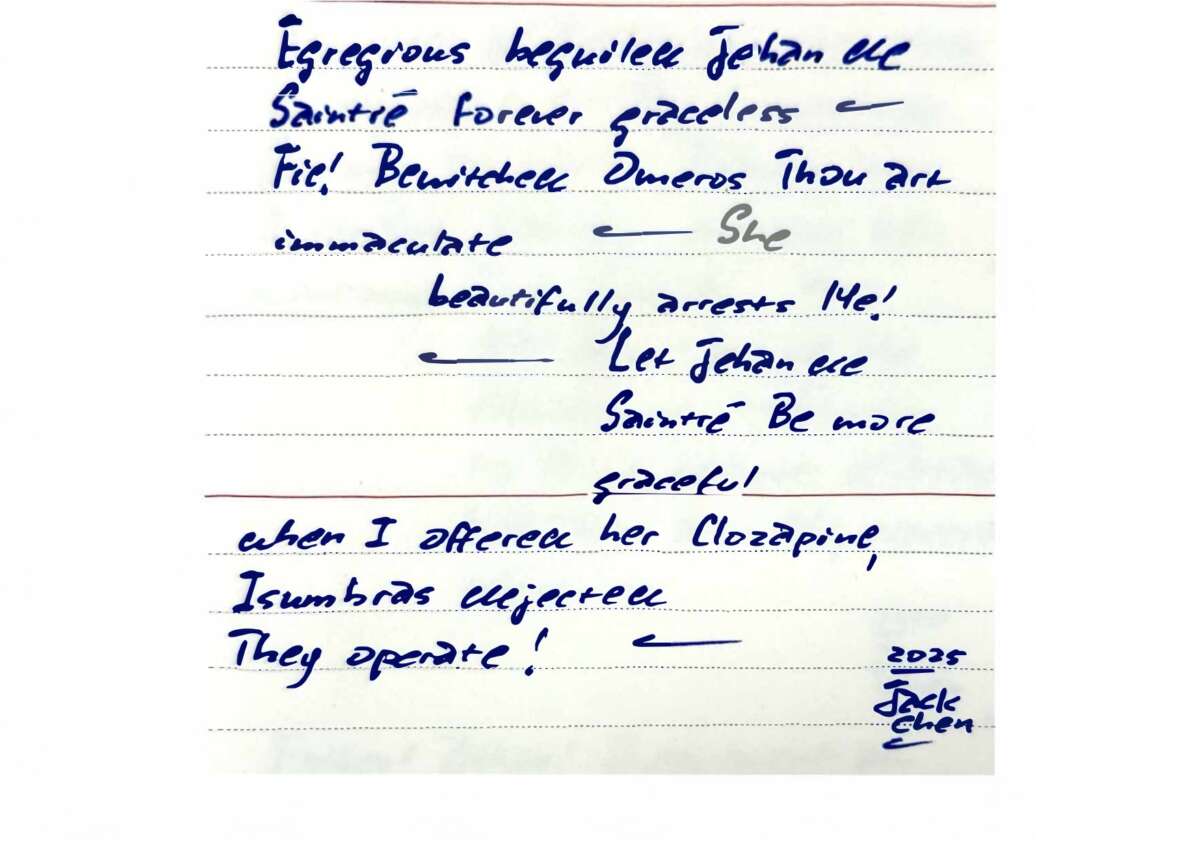 Egregious beguiled Jehan de
Saintré forever graceless
Fie! Bewitched Omeros Thou art
immaculate She
beautifully arrests Me!
Let Jehan de
Saintré Be more
graceful
when I offered her Clozapine,
Isumbras dejected
They operate!
2025
Jack
chen